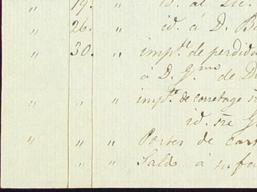 " 19. " id. al
" 26. " id. á D. B
" 30. " impte. de perdida
á D. Gmo. de D
" " " impte. de corretage sre
id. sre G
" " " Portes de car
" " Saldo á su fa